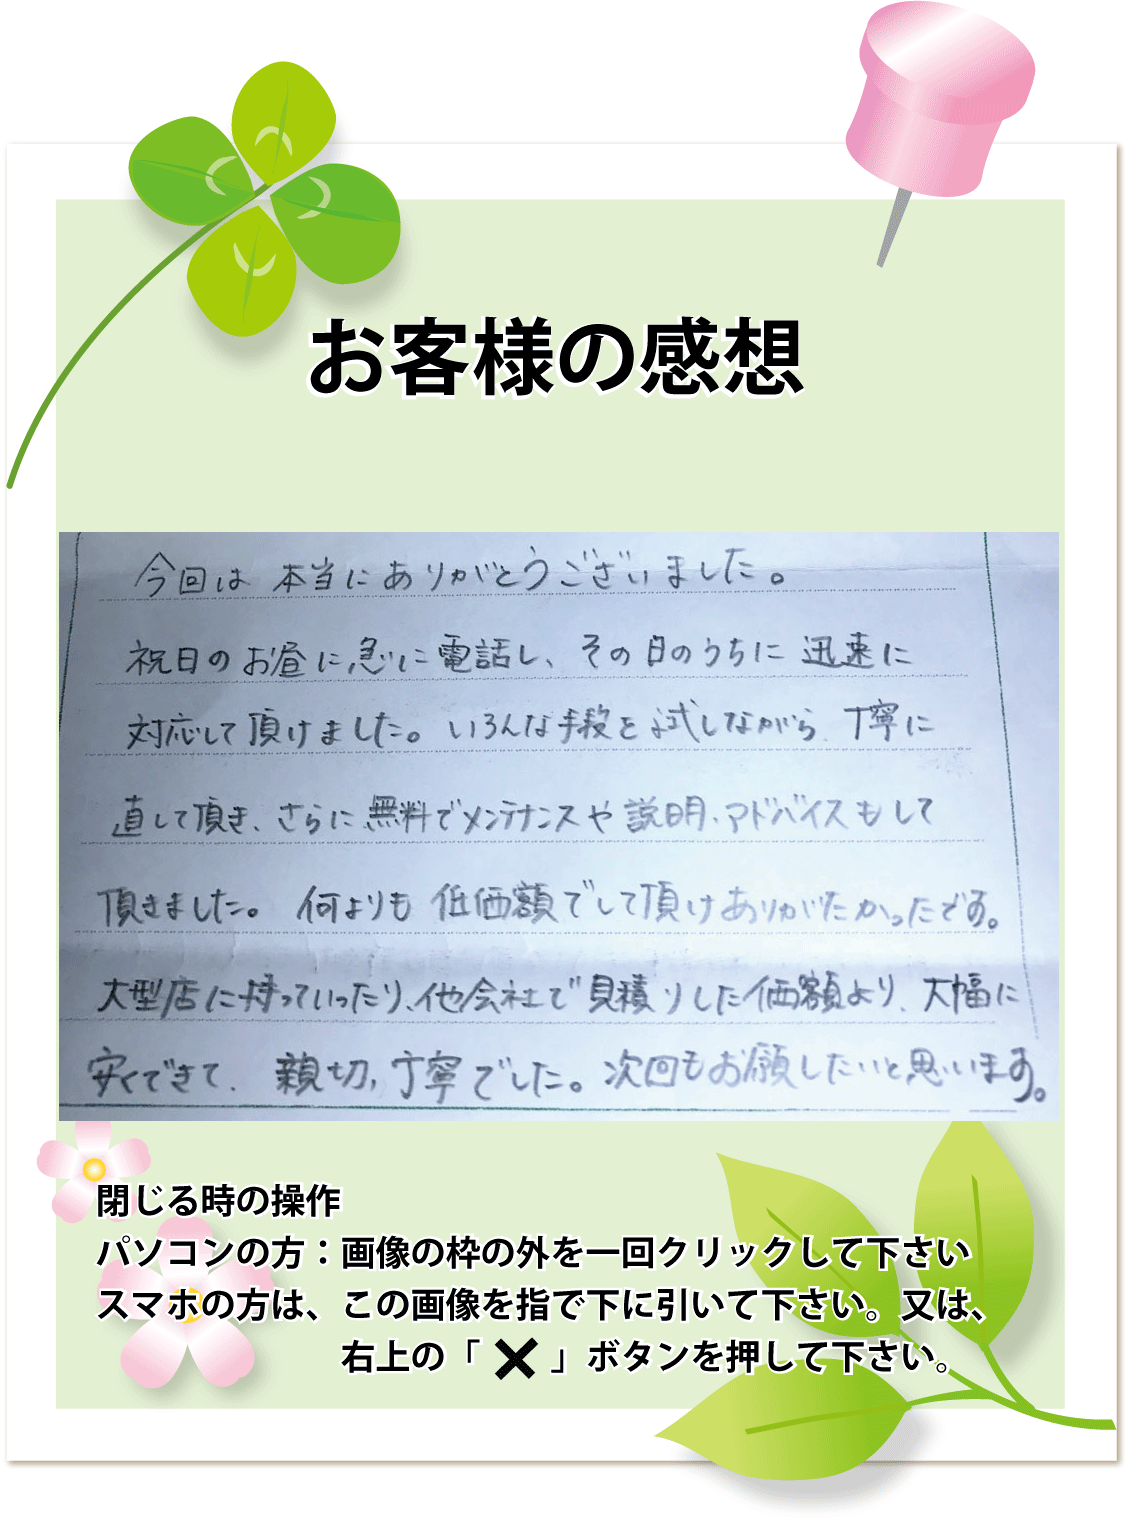 お客様の感想
今回は 本当にありがとうございました。
祝日のお昼に急に電話し、その日のうちに 迅速に
対応して頂けました。いろんな手段を試しながら、丁寧に
直して頂き、さらに無料でメンテナンスや説明、アドバイスもして
頂きました。 何よりも 低価額でして頂けありがたかったです。
大型店に持っていったり、他会社で見積りした価額より、大幅に
安くできて、 親切,丁寧でした。次回もお願したいと思います。
閉じる時の操作
パソコンの方：画像の枠の外を一回クリックして下さい
スマホの方は、この画像を指で下に引いて下さい。又は、
右上の「 ✕ 」ボタンを押して下さい。